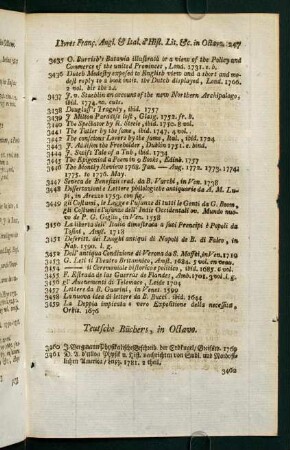 Livres Franç. Angl. & Ital. d'Hist. Lit. &c. in Octavo. 247
3435 O. Burrish's Batavia illustrata or a view of the Policy and
Commerce of the united Provinces, Lond. 1731. 2. b.
3436 Dutch Modesty exposed to English view and a short and
modest reply to a book intit. the Dutch display'd, Lond. 1706.
2 vol. bir the 2a
3437 J. v. Staehlin an account of the new Northern Archipelago,
ibid. 1774. m. cuts.
3438 Douglas's Tragedy, ibid. 1757
3439 J Milton Paradise lost, Glasg. 1752. fr. b.
3440 The Spectator by R. Steele, ibid. 1747. 8 vol.
3441 The Tatler by the same, ibid. 1747. 4 vol.
3442 The conscious Lovers by the same, Ital, ibid. 1724
3443 J. Addison the Freeholder, Dublin, ibid. 1751
3444 J. Swift Tale of a Tub, ibid. 1734
3445 The Epigoniad a Poem in 9 Books, Edinb. 1757
3446 The Monthly Review 1768. Jan. — Aug. 1772. 1773. 1774
1775. 1. 1776. May.
3447 Seneca de Benefizii trad. da B. Varchi, in Ven. 1738
3448 Dissertazioni e Lettere philologiche antiquarie da A. M. Lu-
pi, in Arezzo 1753. cm fig.
3449 gli Costumi, le Legge e l'usanze di tutti le Genti da G. Boem,
gli Costumi e l'usanze dell' Indie Occidentali ov. Mundo nuo-
vo de P. G. Giglio, in Ven. 1558
3450 La liberta dell' Italia dimostrata a suoi Prencipi è Popoli da
Tisint, Augl. 1718
3451 Descritt. dei Luoghi antiqui di Napoli da B. di Falco, in
Nap. 1590. l. f.
3452 Dell' antiqua Conditione di Verona da S. Maffei, in Ven. 1719
3453 G. Leti il Theatro Britannico, Amst. 1684. 5 vol. en veau.
3454 — — il Ceremoniale historico e politico, ibid. 1685. 6 vol.
3455 F. Estrada de las Guerras de Flandes, Amb. 1701. 3 vol. l. g.
3456 gl' Auenimenti di Telemaco, Leide 1704
3457 Lettere da B. Guarini, in Venti. 1599
3458 La nuova idea di lettere da E. Bucci. ibid. 1644
3459 La Doppia impiccata o vero Expositione della necessita,
Orbit. 1676
Teutsche Bücher, in Octavo.
3460 J. Bergmann Physikalische Beschreib. der Erdkugel, Greifsw. 1769
3461 D. A. d'Ulloa Physik. u. Hist. nachrichten von Südl. und Nordöst-
lichen America, Leipz. 1781. 2 theil.
3462